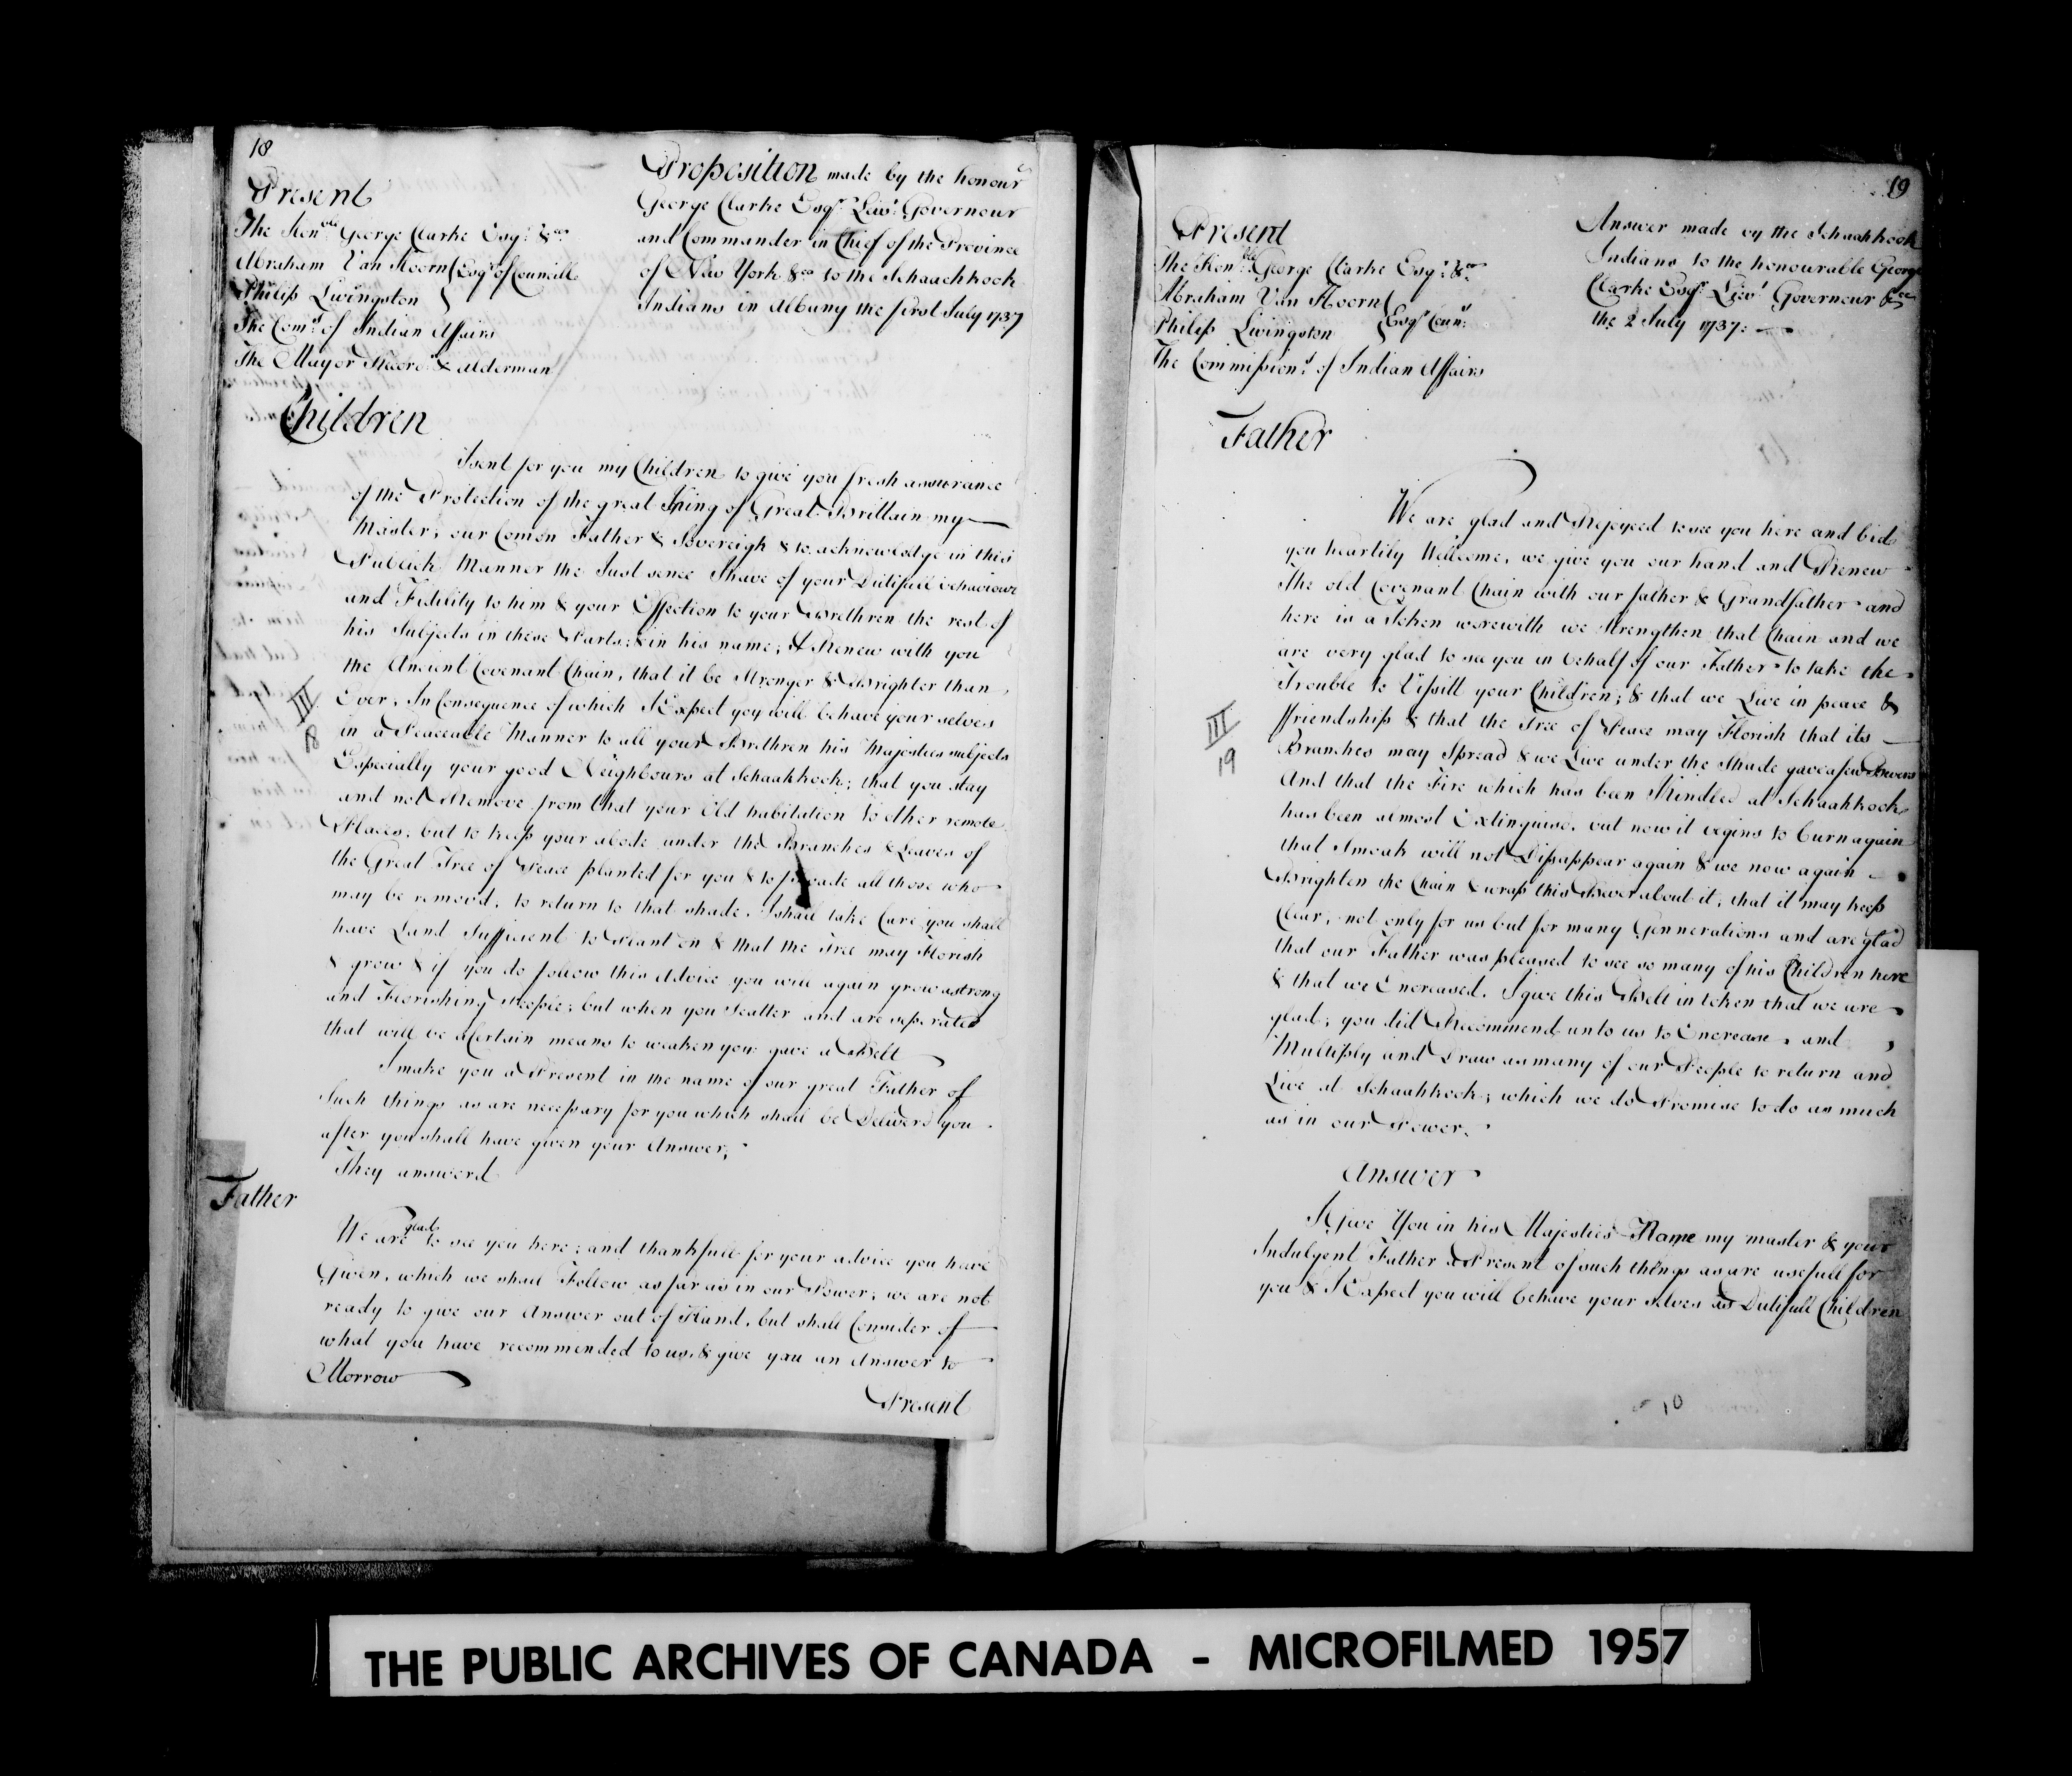 18
Present
The Honble George Clarke Esqr &ca
Abraham Van Hoorn } Esqrs of Councill
Philip Livingston }
The Comrs of Indian Affairs
The Mayor Recordr & Alderman
Proposition made by the honour
George Clarke Esqr Lievt Governour
and Commander in Chief of the Province
of New York &ca to the Schaachkook
Indians in Albany the first July 1737
Children
I sent for you my Children to give you fresh assurance
of the Protection of the great King of Great Brittain my
Master, our Comon Father & Sovereigh & to acknowledge in this
Publick Manner the Just sence I have of your Dutifull behaviour
and Fidility to him & your Effection to your Brethren the rest of
his Subjects in these Parts; & in his name; I Renew with you
the Ancient Covenant Chain, that it be Stronger & Brighter than
Ever, In Consequence of which I Expect you will behave your selves
in a Peaceable Manner to all your Brethren his Majesties subjects
Especially your good Neighbours at Schaahkook; that you stay
and not Remove from that your Old habitation to other remote
Places, but to keep your abode under the Branches & Leaves of
the Great Tree of Peace planted for you & to all those who
may be removd, to return to that shade. I shall take Care you shall
have Land Sufficient to Plant on & that the Tree may Florish
& grow & if you do follow this Advice you will again grow a strong
and Florishing People; but when you Scatter and are seperated
that will be a Certain means to weaken you gave a Belt
I make you a Present in the name of our great Father of
Such things as are necessary for you which shall be Deliverd you
after you shall have given your Answer,
They answerd
Father
We are glad to see you here; and thankfull for your advice you have
Given, which we shall Follow as far as in our Power; we are not
ready to give our Answer out of Hand, but shall Consider of
what you have recommended to us, & give you an Answer to
Morrow
Present
III
18
19
Present
The Honble George Clarke Esqr &ca
Abraham Van Hoorn }
Philip Livingston } Esqrs Counr
The Commissionrs of Indian Affairs
Answer made by the Schaahkook
Indians to the honourable George
Clarke Esqr Lievt Governour &ca
the 2 July 1737:
Father
We are glad and Rejoyced to see you here and bid
you heartily Wellcome, we give you our hand and Renew
The old Covenant Chain with our father & Grandfather and
here is a Token werewith we Strengthen that Chain and we
are very glad to see you in behalf of our Father to take the
Trouble to Vissitt your Children; & that we Live in peace &
ffriendship & that the Tree of Peace may Florish that its
Branches may Spread & we Live under the Shade gave a few Bevers
And that the Fire which has been Kindled at Schaahkook
has been almost Extinguise, but now it begins to burn again
that Smoak will not Dissappear again & we now again
Brighten the Chain & wrap this Bever about it, that it may keep
Clear, not only for us but for many Gennerations and are glad
that our Father was pleased to see so many of his Children here
& that we Encreased. I give this Belt in token that we are
glad; you did Recommend unto us to Encrease and
Multiply and Draw as many of our People to return and
Live at Schaahkook; which we do Promise to do as much
as in our Power.
Answer
I Give You in his Majesties Name my master & your
Indulgent Father a Present of such things as are usefull for
you & I Expect you will behave your selves as Dutifull Children
III
19
10
THE PUBLIC ARCHIVES OF CANADA - MICROFILMED 1957